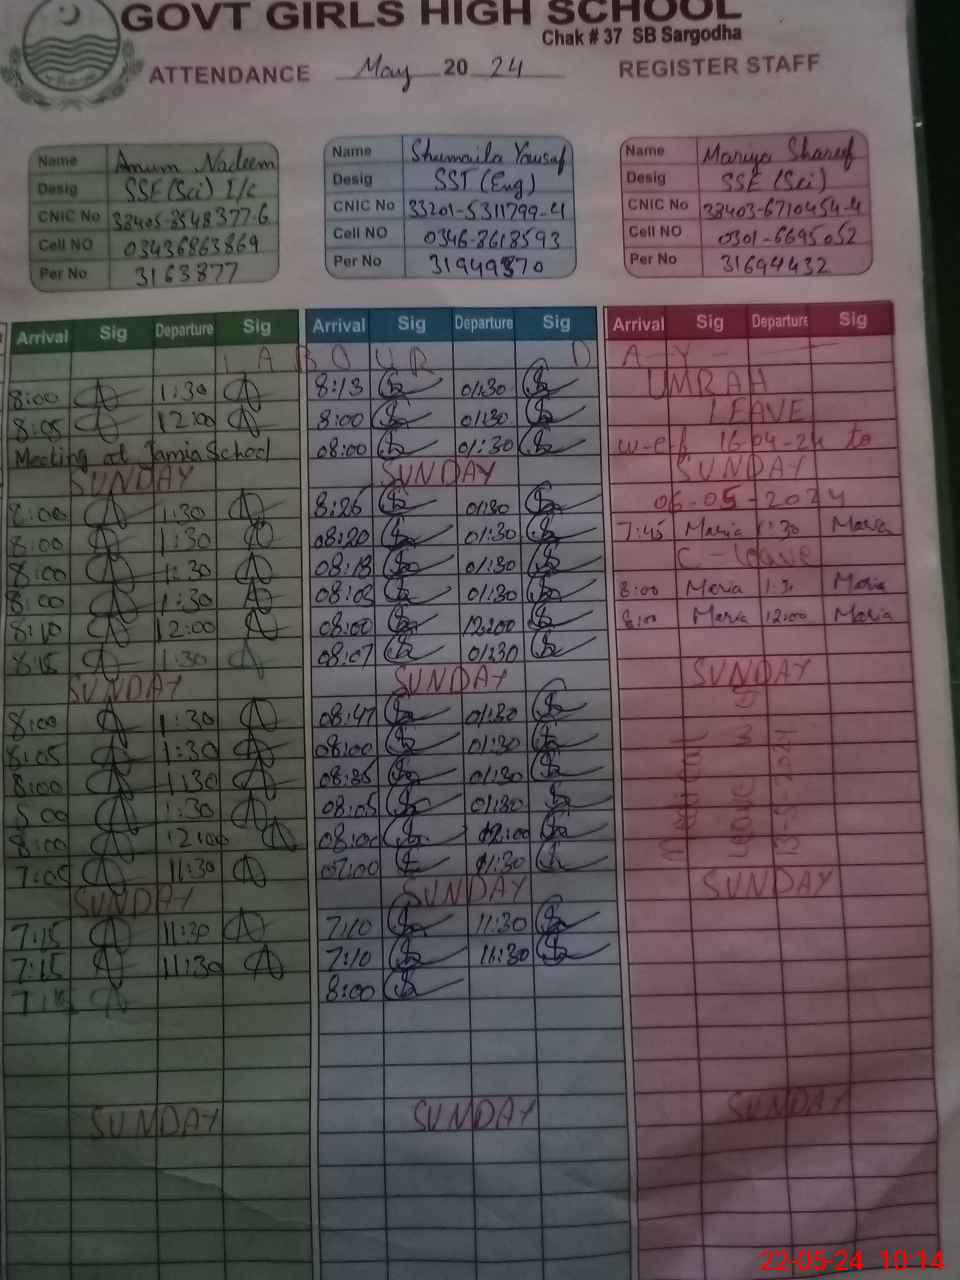 GOVT GIRLS HIGH SCHOOL
Chak # 37 SB Sargodha
ATTENDANCE May 20 24 REGISTER STAFF
Name Anum Nadeem
Desig SSE (Sci) I/c
CNIC No 38405-8548377-6
Cell NO 03436863869
Per No 3163877
Name Shumaila Yousaf
Desig SST (Eng)
CNIC No 33201-5311799-4
Cell NO 0346-8618593
Per No 31949870
Name Mariya Shareef
Desig SSE (Sci)
CNIC No 38403-6710454-4
Cell NO 0301-6695052
Per No 31694432
Arrival Sig Departure Sig Arrival Sig Departure Sig Arrival Sig Departure Sig
LABOUR DAY
8:00 1:30 8:13 01:30 UMRAH
8:05 12:00 8:00 01:30 LEAVE
Meeting at Jamia School 08:00 01:30 w-e-f 16-04-24 to
SUNDAY SUNDAY SUNDAY
8:00 1:30 8:26 01:30 06-05-2024
8:00 1:30 08:20 01:30 7:45 Maria 1:30 Maria
8:00 1:30 08:18 01:30 C-leave
8:00 1:30 08:03 01:30 8:00 Maria 1:3 Maria
8:10 12:00 08:00 12:00 8:00 Maria 12:00 Maria
8:15 1:30 08:07 01:30
SUNDAY SUNDAY SUNDAY
8:00 1:30 08:47 01:30
8:05 1:30 08:00 01:30
8:00 1:30 08:35 01:30
1:30 08:05 01:30
8:00 12:00 08:00 12:00
7:05 11:30 07:00 11:30
Leave
SUNDAY SUNDAY SUNDAY
7:15 11:30 7:10 11:30
7:15 11:30 7:10 11:30
8:00
SUNDAY SUNDAY SUNDAY
22-05-24 10:14